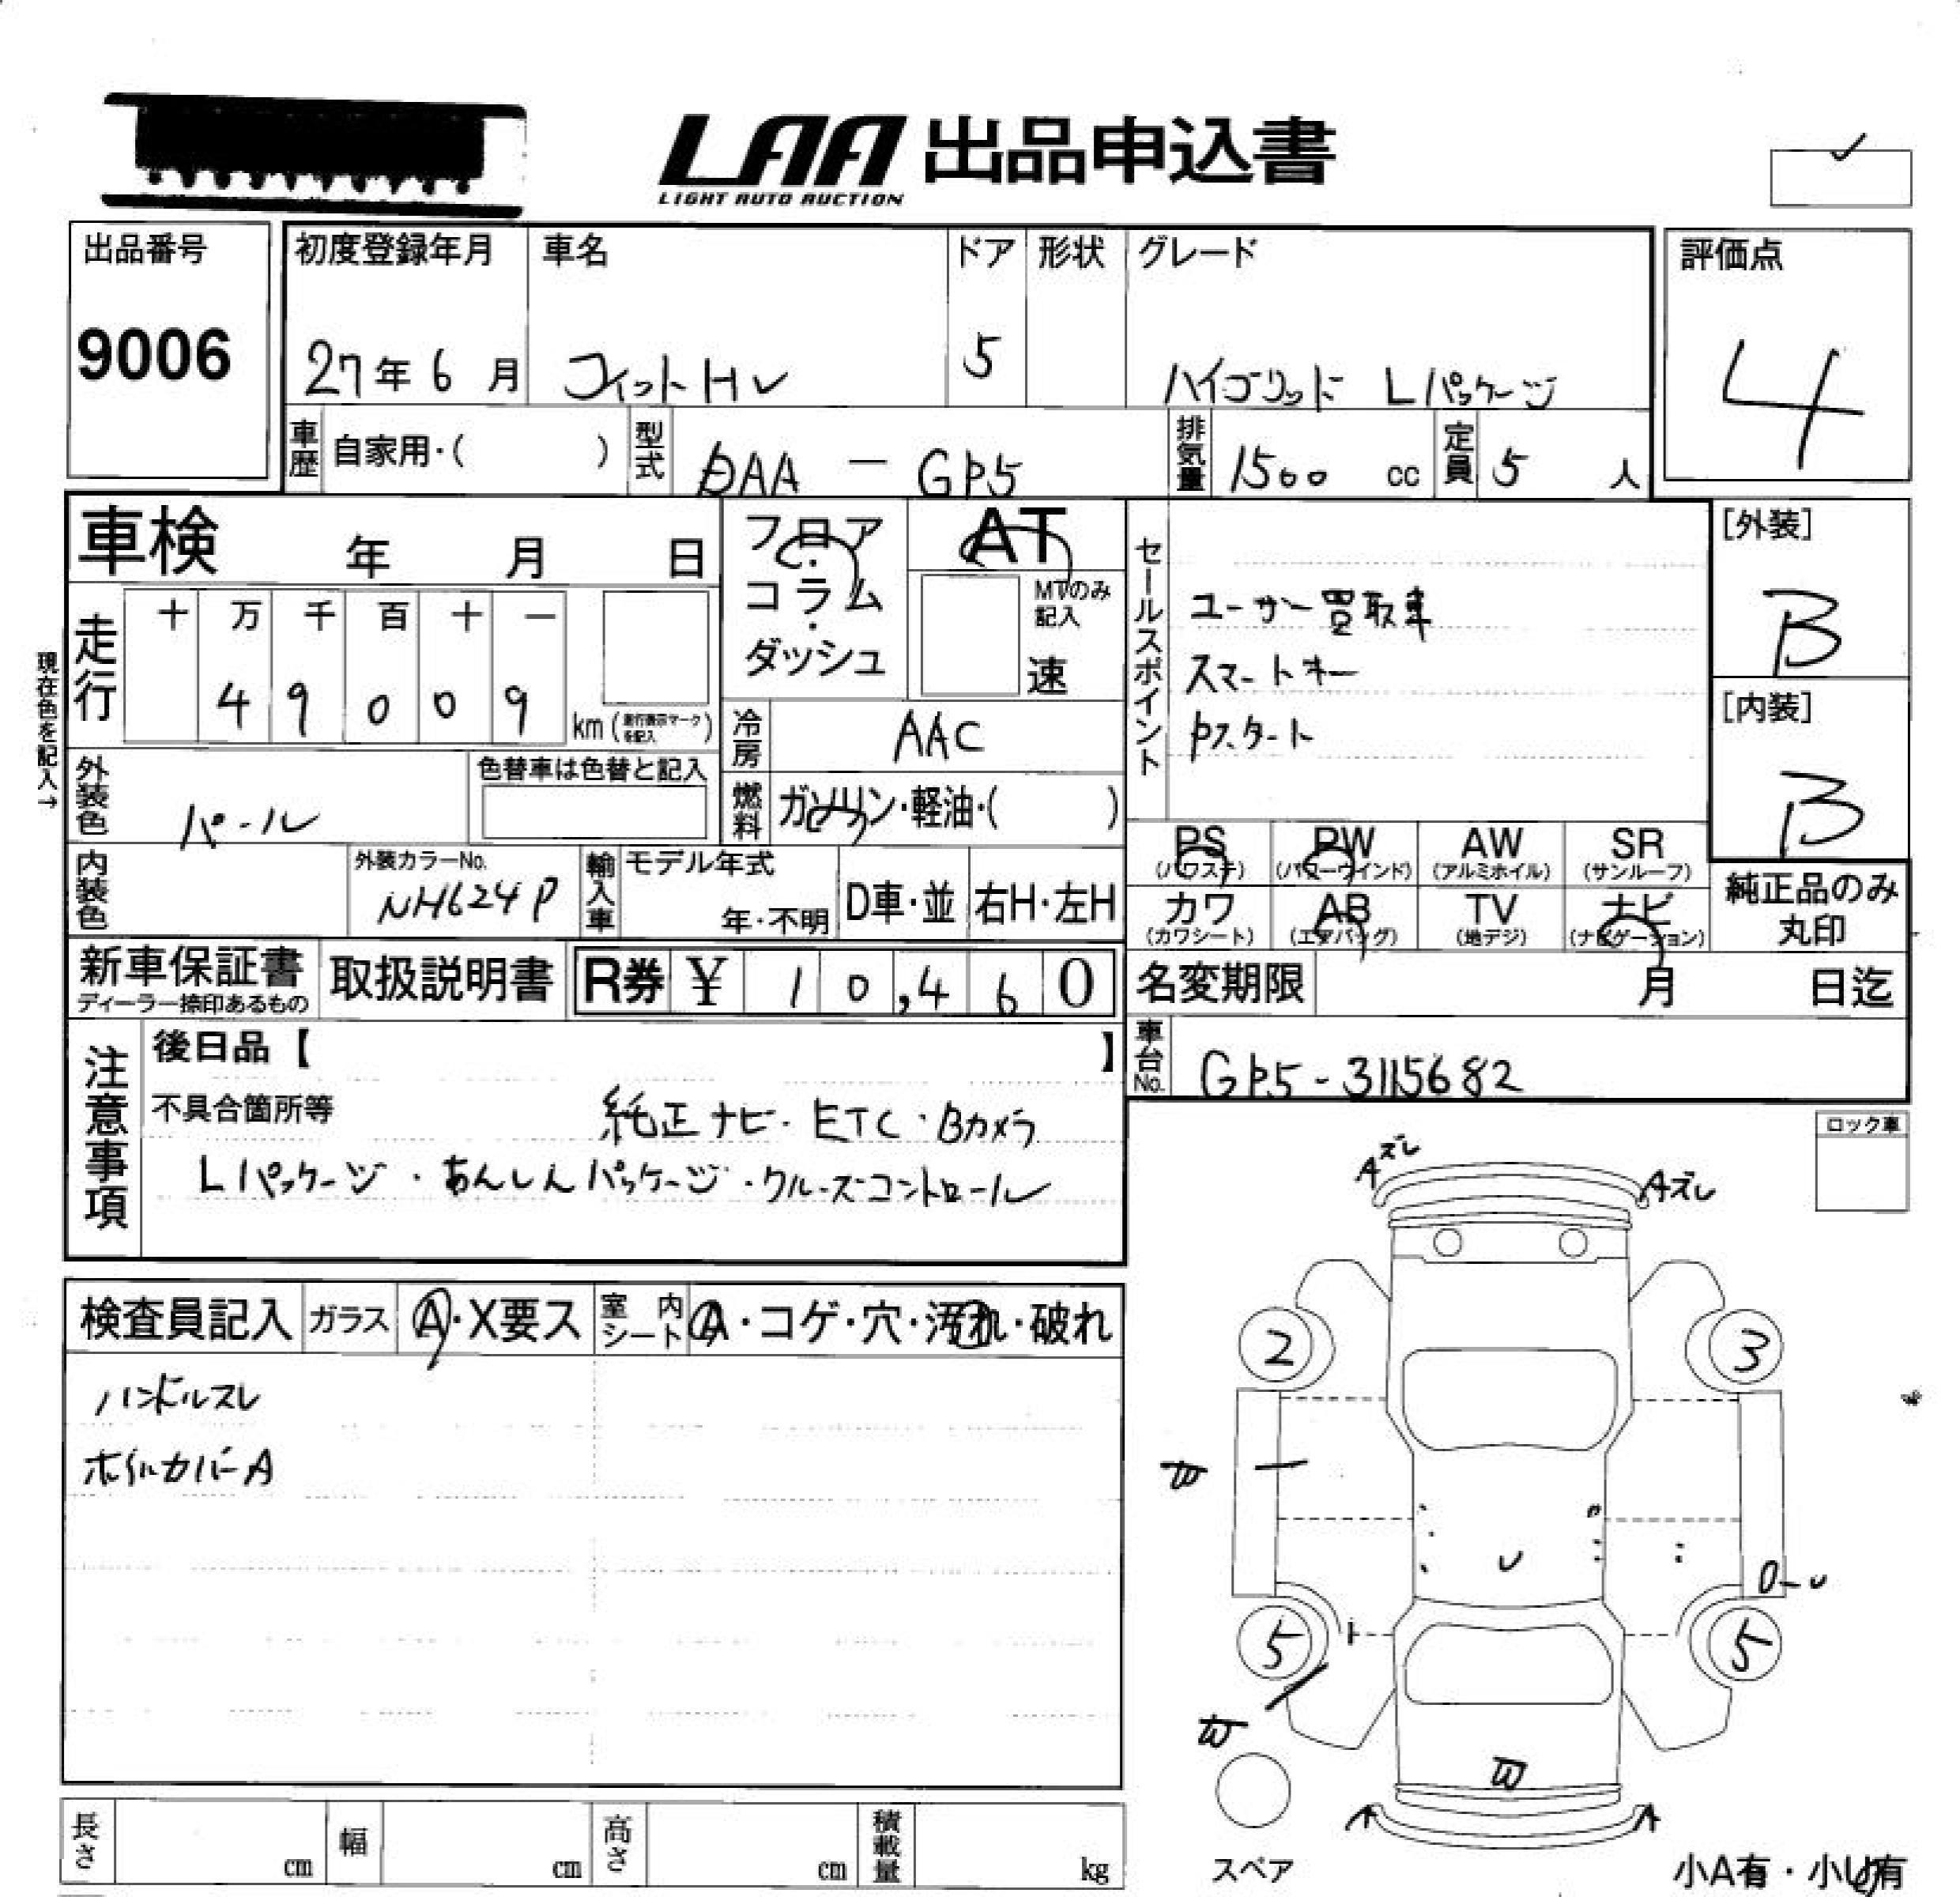 LAA 出品申込書
LIGHT AUTO AUCTION
出品番号
9006
初度登録年月
27年6月
車名
フィットHV
ドア
5
形状
グレード
ハイブリッド Lパッケージ
評価点
4
車歴
自家用・( )
型式
DAA - GP5
排気量
1500 cc
定員
5 人
車検 年 月 日
フロア・コラム・ダッシュ
AT
MTのみ記入
速
セールスポイント
ユーザー買取車
スマートキー
Pスタート
[外装]
B
[内装]
B
現在色を記入→
走行
十 万 千 百 十 一
4 9 0 0 9
km (走行表示マークを記入)
冷房
AAC
外装色
パール
色替車は色替と記入
燃料
ガソリン・軽油・( )
PS (パワステ)
PW (パワーウインド)
AW (アルミホイル)
SR (サンルーフ)
カワ (カワシート)
AB (エアバッグ)
TV (地デジ)
ナビ (ナビゲーション)
純正品のみ丸印
内装色
外装カラーNo.
NH624P
輸入車
モデル年式
年・不明
D車・並
右H・左H
新車保証書
ディーラー捺印あるもの
取扱説明書
R券 ¥ 10,460
名変期限 月 日迄
車台No.
GP5-3115682
注意事項
後日品【 】
不具合箇所等
純正ナビ・ETC・Bカメラ
Lパッケージ・あんしんパッケージ・クルーズコントロール
ロック車
Aズレ
Aズレ
検査員記入
ガラス
A・X要ス
室内シート
A・コゲ・穴・汚れ・破れ
ハンドルスレ
ホイルカバーA
2
3
W
U
U
5
5
W
W
A
A
スペア
小A有・小U有
長さ cm
幅 cm
高さ cm
積載量 kg